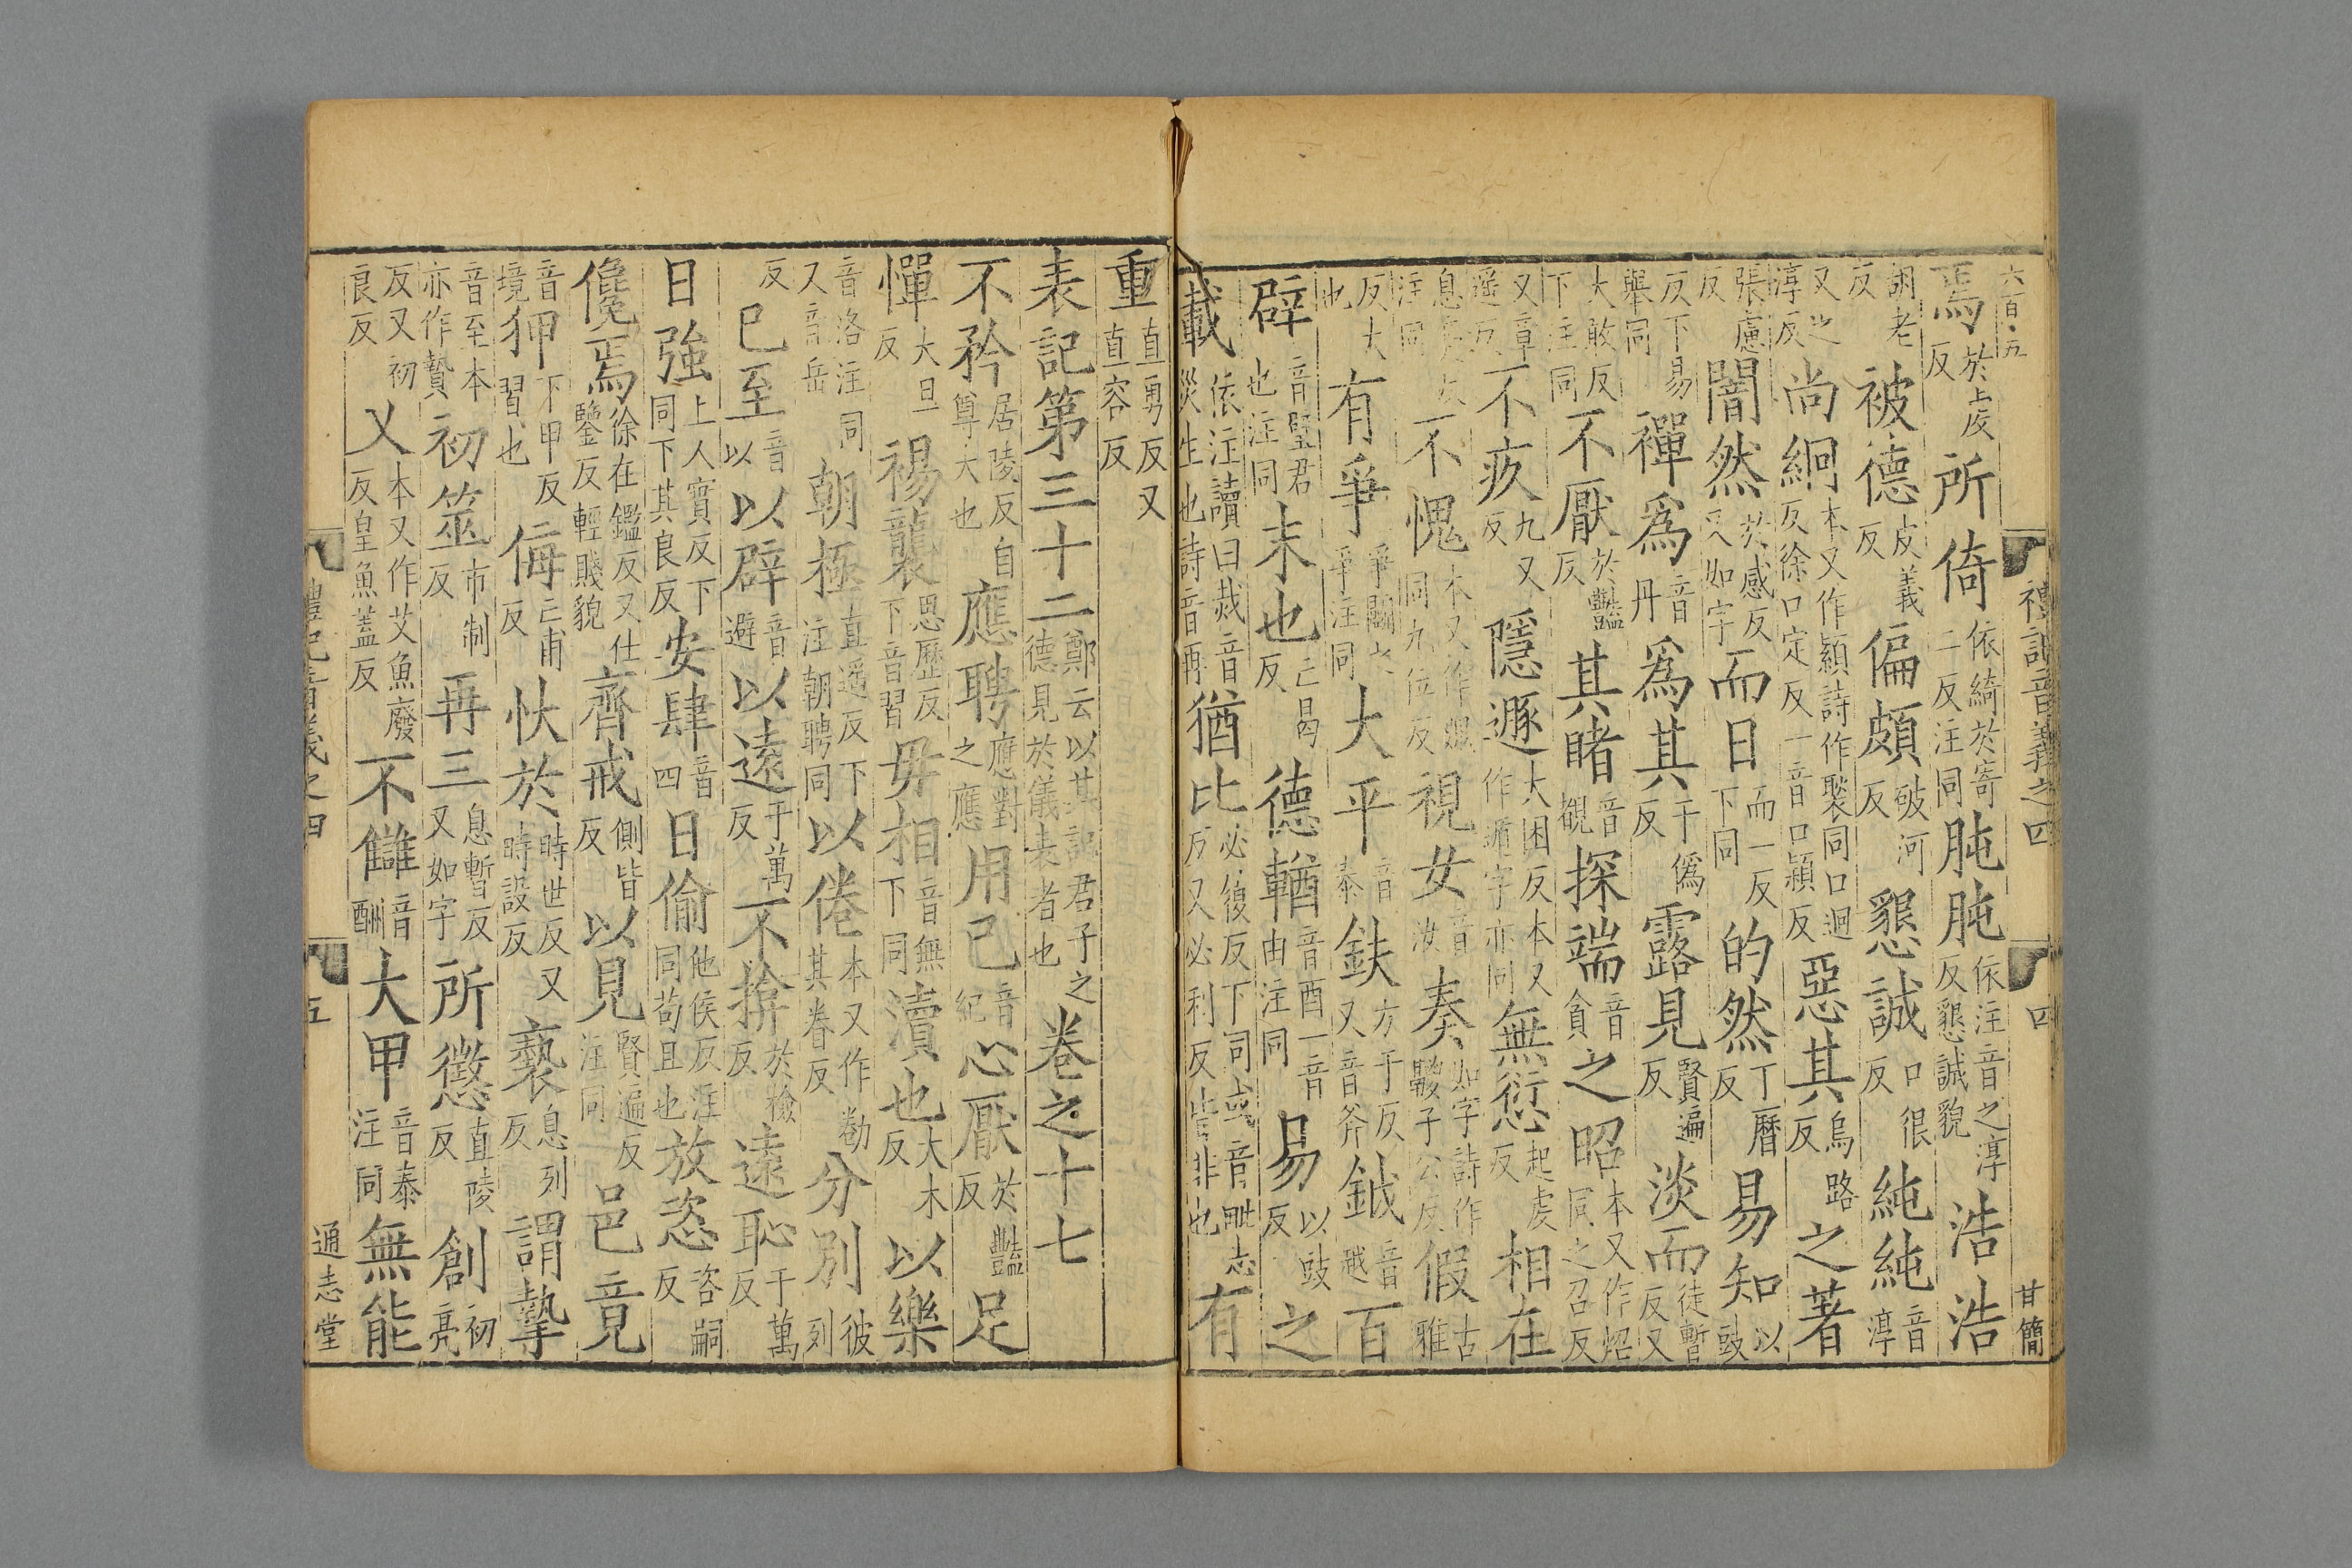 六百五
禮記音義之四
四
甘簡
焉於虔反所倚依綺於寄二反注同肫肫依注音之淳反懇誠貌浩浩
胡老反被德皮義反偏頗破河反懇誠口很反純純音淳
又之淳反尚絅本又作顈詩作褧同口迥反徐口定反一音口潁反惡其烏路反之著
張慮反闇然於感反又如字而日而一反下同的然丁曆反易知以豉
反下易舉同襌爲音丹爲其于僞反露見賢遍反淡而徒暫反又
大敢反下注同不厭於豔反其睹音覩探端音貪之昭本又作炤同之召反
又章遥反不疚九又反隱遯大困反本又作遁字亦同無愆起虔反相在
息亮反注同不愧本又作媿同九位反視女音汝奏如字詩作鬷子公反假古雅
反大也有爭爭鬬之爭注同大平音泰鈇方于反又音斧鉞音越百
辟音璧君也注同末也亡曷反德輶音酉一音由注同易以豉反之
載依注讀曰烖音災生也詩音再猶比必復反下同或音毗志反又必利反皆非也有
重直勇反又直容反
表記第三十二鄭云以其記君子之德見於儀表者也卷之十七
不矜居陵反自尊大也應聘應對之應用已音紀心厭於豔反足
憚大旦反裼襲思歷反下音習毋相音無下同瀆也大木反以樂
音洛注同又音岳朝極直遥反下注朝聘同以倦本又作勌其眷反分别彼列
反已至音以以辟音避以遠于萬反不揜於檢反遠恥于萬反
日強上人實反下同下其良反安肆音四日偷他侯反注同苟且也放恣咨嗣反
儳焉徐在鑑反又仕鑒反輕賤貌齊戒側皆反以見賢遍反注同邑竟
音境狎下甲反習也侮亡甫反忕於時世反又時設反褻息列反謂摯
音至本亦作贄初筮市制反再三息暫反又如字所懲直陵反創初亮
反又初良反乂本又作艾魚廢反皇魚蓋反不讎音酬大甲音泰注同無能
禮記音義之四
五
通志堂